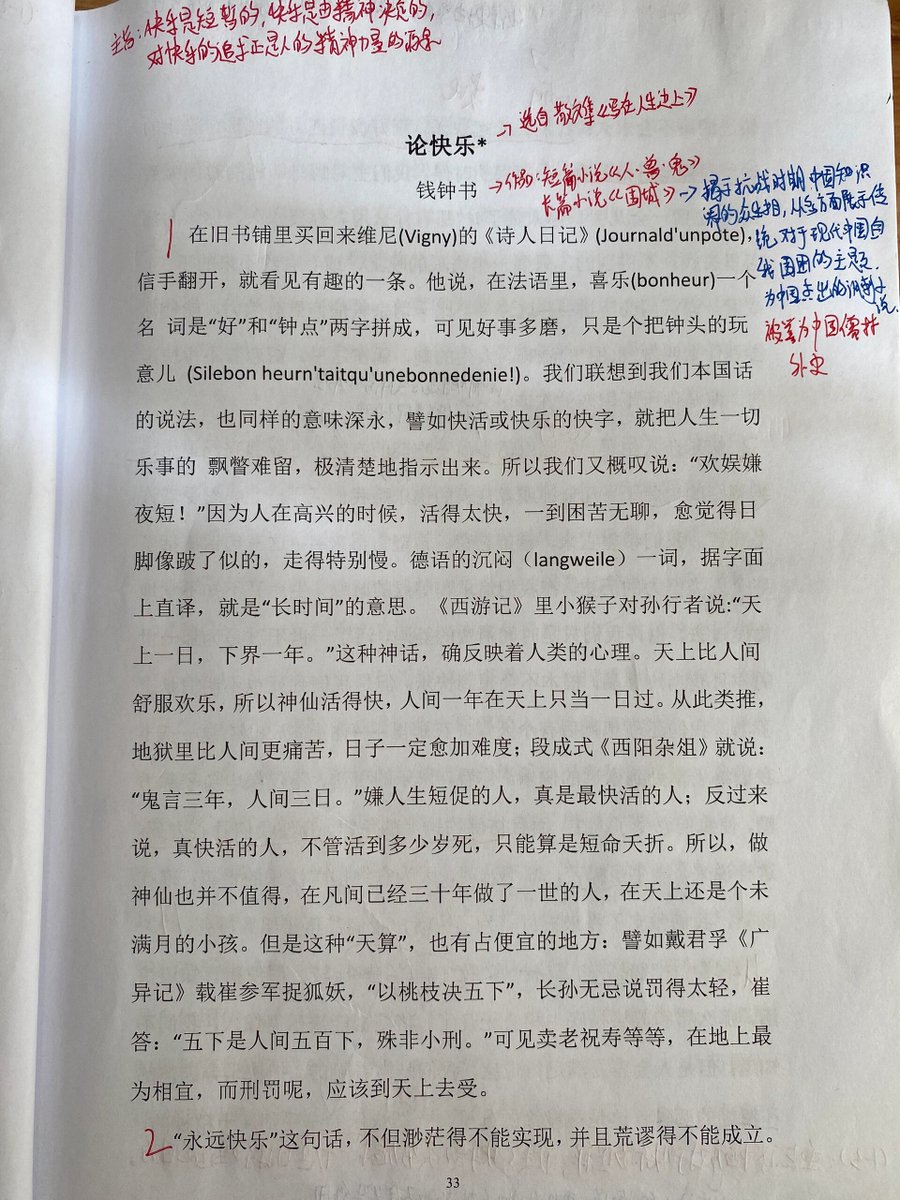 主旨：快乐是短暂的，快乐是由精神决定的，
对快乐的追求正是人的精神力量的
→选自散文集《写在人生边上》
论快乐*
钱钟书
→作品：短篇小说《人·兽·鬼》
长篇小说《围城》
→揭示抗战时期中国知识
1 在旧书铺里买回来维尼(Vigny)的《诗人日记》(Journald'unpote)，
信手翻开，就看见有趣的一条。他说，在法语里，喜乐(bonheur)一个
名 词是“好”和“钟点”两字拼成，可见好事多磨，只是个把钟头的玩
意儿 (Silebon heurn'taitqu'unebonnedenie!)。我们联想到我们本国话
的说法，也同样的意味深永，譬如快活或快乐的快字，就把人生一切
乐事的 飘瞥难留，极清楚地指示出来。所以我们又概叹说：“欢娱嫌
夜短！”因为人在高兴的时候，活得太快，一到困苦无聊，愈觉得日
脚像跛了似的，走得特别慢。德语的沉闷（langweile）一词，据字面
上直译，就是“长时间”的意思。《西游记》里小猴子对孙行者说:“天
上一日，下界一年。”这种神话，确反映着人类的心理。天上比人间
舒服欢乐，所以神仙活得快，人间一年在天上只当一日过。从此类推，
地狱里比人间更痛苦，日子一定愈加难度；段成式《西阳杂俎》就说：
“鬼言三年，人间三日。”嫌人生短促的人，真是最快活的人；反过来
说，真快活的人，不管活到多少岁死，只能算是短命夭折。所以，做
神仙也并不值得，在凡间已经三十年做了一世的人，在天上还是个未
满月的小孩。但是这种“天算”，也有占便宜的地方：譬如戴君孚《广
异记》载崔参军捉狐妖，“以桃枝决五下”，长孙无忌说罚得太轻，崔
答：“五下是人间五百下，殊非小刑。”可见卖老祝寿等等，在地上最
为相宜，而刑罚呢，应该到天上去受。
2 “永远快乐”这句话，不但渺茫得不能实现，并且荒谬得不能成立。
的众生相，从多方面展示传
统对于现代中国自
我围困的主题
为中国杰出的讽刺小
说
被誉为中国儒林
外史
33